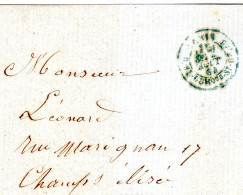 Monsieur
Léonard
rue Marignan 17
Champs élisée